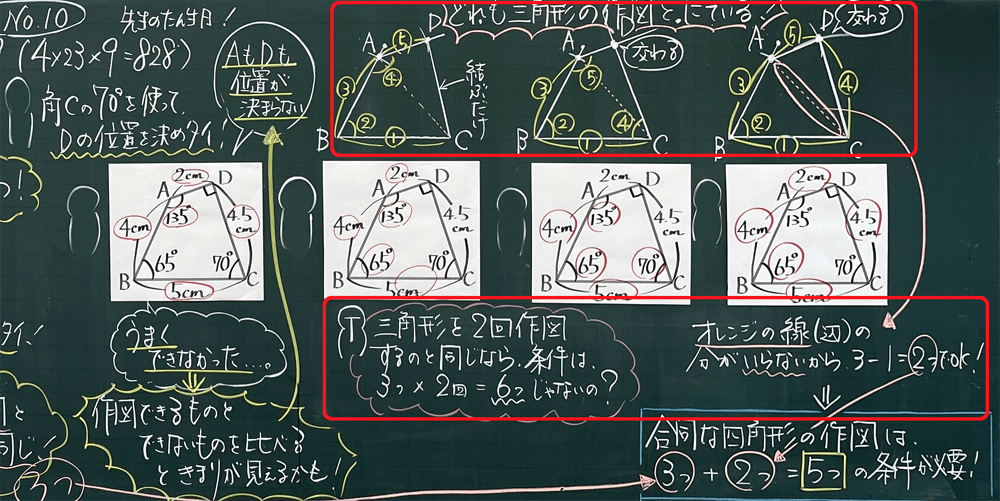 No.10
先生のたん生日!
(4×23×9=828)
角Cの70°を使って
Dの位置を決めタイ!
AもDも
位置が
決まらない
どれも三角形の作図と。にている。
A ⑤ D
③ ④
結ぶだけ
②
B ① C
A D
変わる
③ ⑤
② ④
B ① C
A ⑤ D
変わる
③ ④
②
B ① C
2cm
A D
135°
4cm 4.5cm
65° 70°
B C
5cm
2cm
A D
135°
4cm 4.5cm
65° 70°
B C
5cm
2cm
A D
135°
4cm 4.5cm
65° 70°
B C
5cm
2cm
A D
135°
4cm 4.5cm
65° 70°
B C
5cm
うまく
できなかった…。
作図できるものと
できないものを比べる
ときまりが見えるかも!
Ⓣ 三角形を2回作図
するのと同じなら、条件は、
3つ×2回=6つじゃないの?
オレンジの線(辺)の
分がいらないから、3-1=2つでOK!
合同な四角形の作図は、
3つ+2つ=5つの条件が必要!
タイ!
と
同じ!
3つ